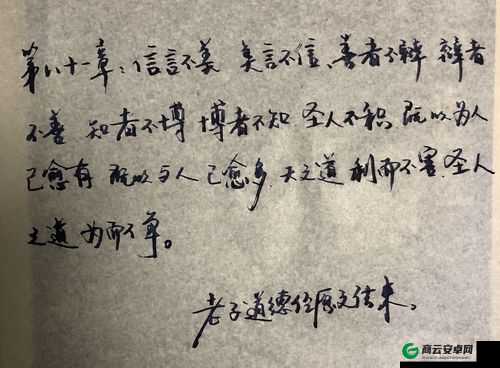 第八十一章：信言不美 美言不信、善者不辩 辩者
不善 知者不博 博者不知 圣人不积 既以为人
己愈有 既以与人 己愈多、天之道 利而不害、圣人
之道 为而不争。
老子道德经原文结束。
商云安卓网